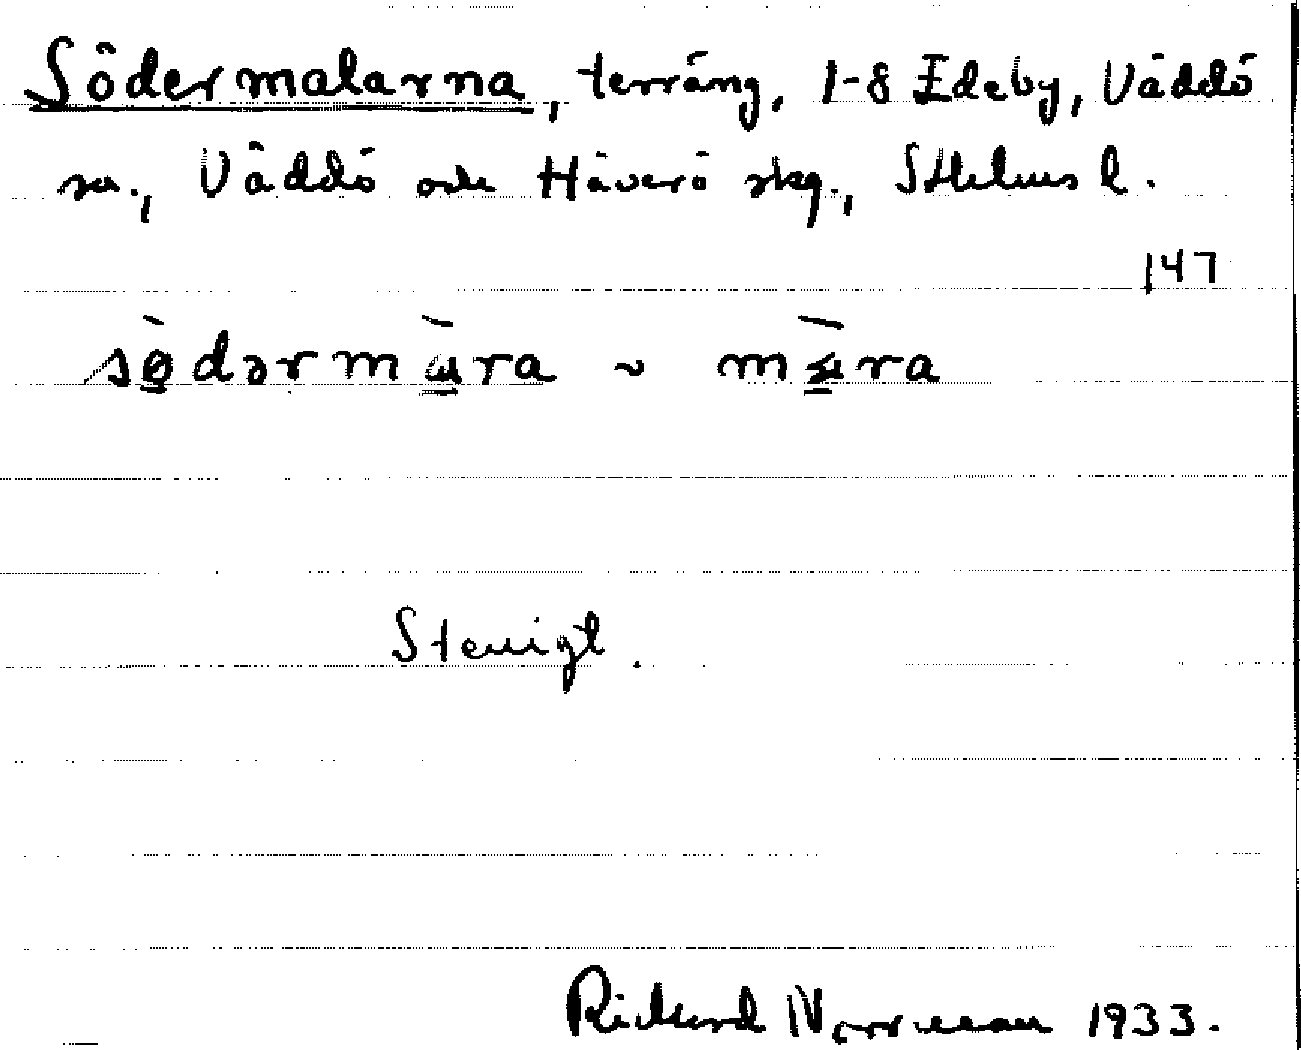 Södermalarna, terräng, 1-8 Edeby, Väddö
sn., Väddö och Häverö skg., Sthlms l.
147
sø̀dərmɯ̀ra ~ mɯ̀ra
Stenigt.
Rickard Norrman 1933.